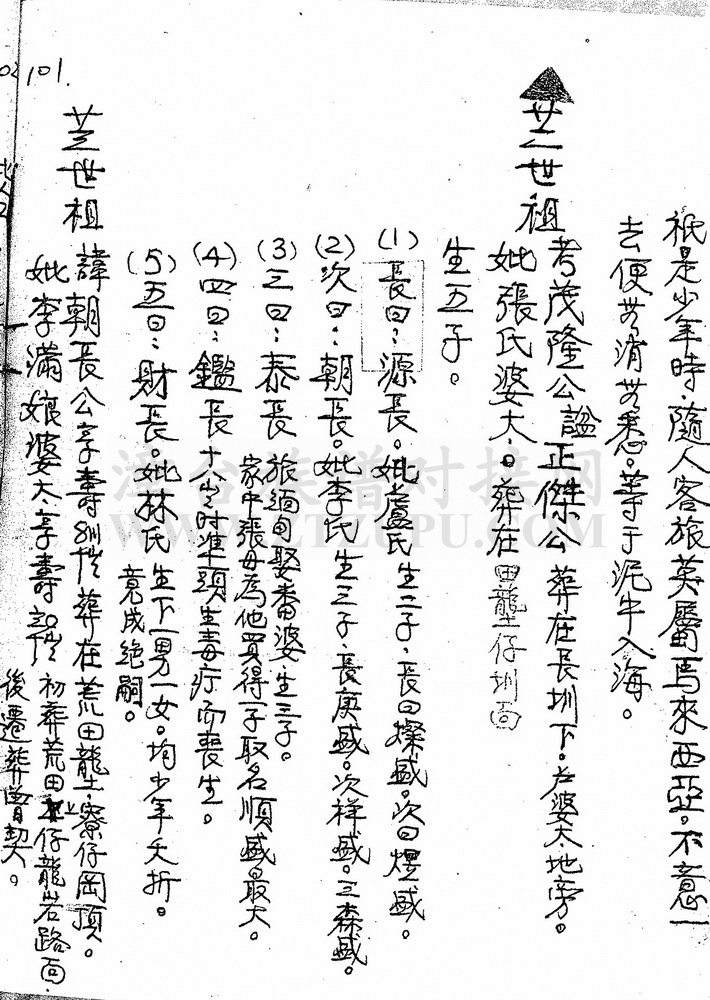 祗是少年時、隨人客旅英屬馬來西亞。不意一
去便苦消苦悉。等于泥牛入海。
廿二世祖
考茂隆公諡正傑公葬在長圳下。左婆太地旁。
妣張氏婆太。葬在田壟仔圳面
生五子。
(1)長曰：源長。妣盧氏生二子、長曰燦盛。次曰煙盛。
(2)次曰：朝長。妣李氏生三子、長庚盛。次祥盛。三森盛。
(3)三曰：泰長旅緬甸娶番婆生三子。
家中張母為他買得一子取名順盛最大。
(4)四曰：鑑長十八歲時準頭生毒疔而喪生。
(5)五曰：財長。妣林氏生下一男一女。均少年夭折。
竟成絕嗣。
廿三世祖
諱朝長公享壽 葬在荒田壟寮仔岡頂。
妣李滿娘婆太享壽 初葬荒田 仔龍岩路面
後遷葬曾契。
101.
漳台族谱对接网
WWW.ZTZUPU.COM